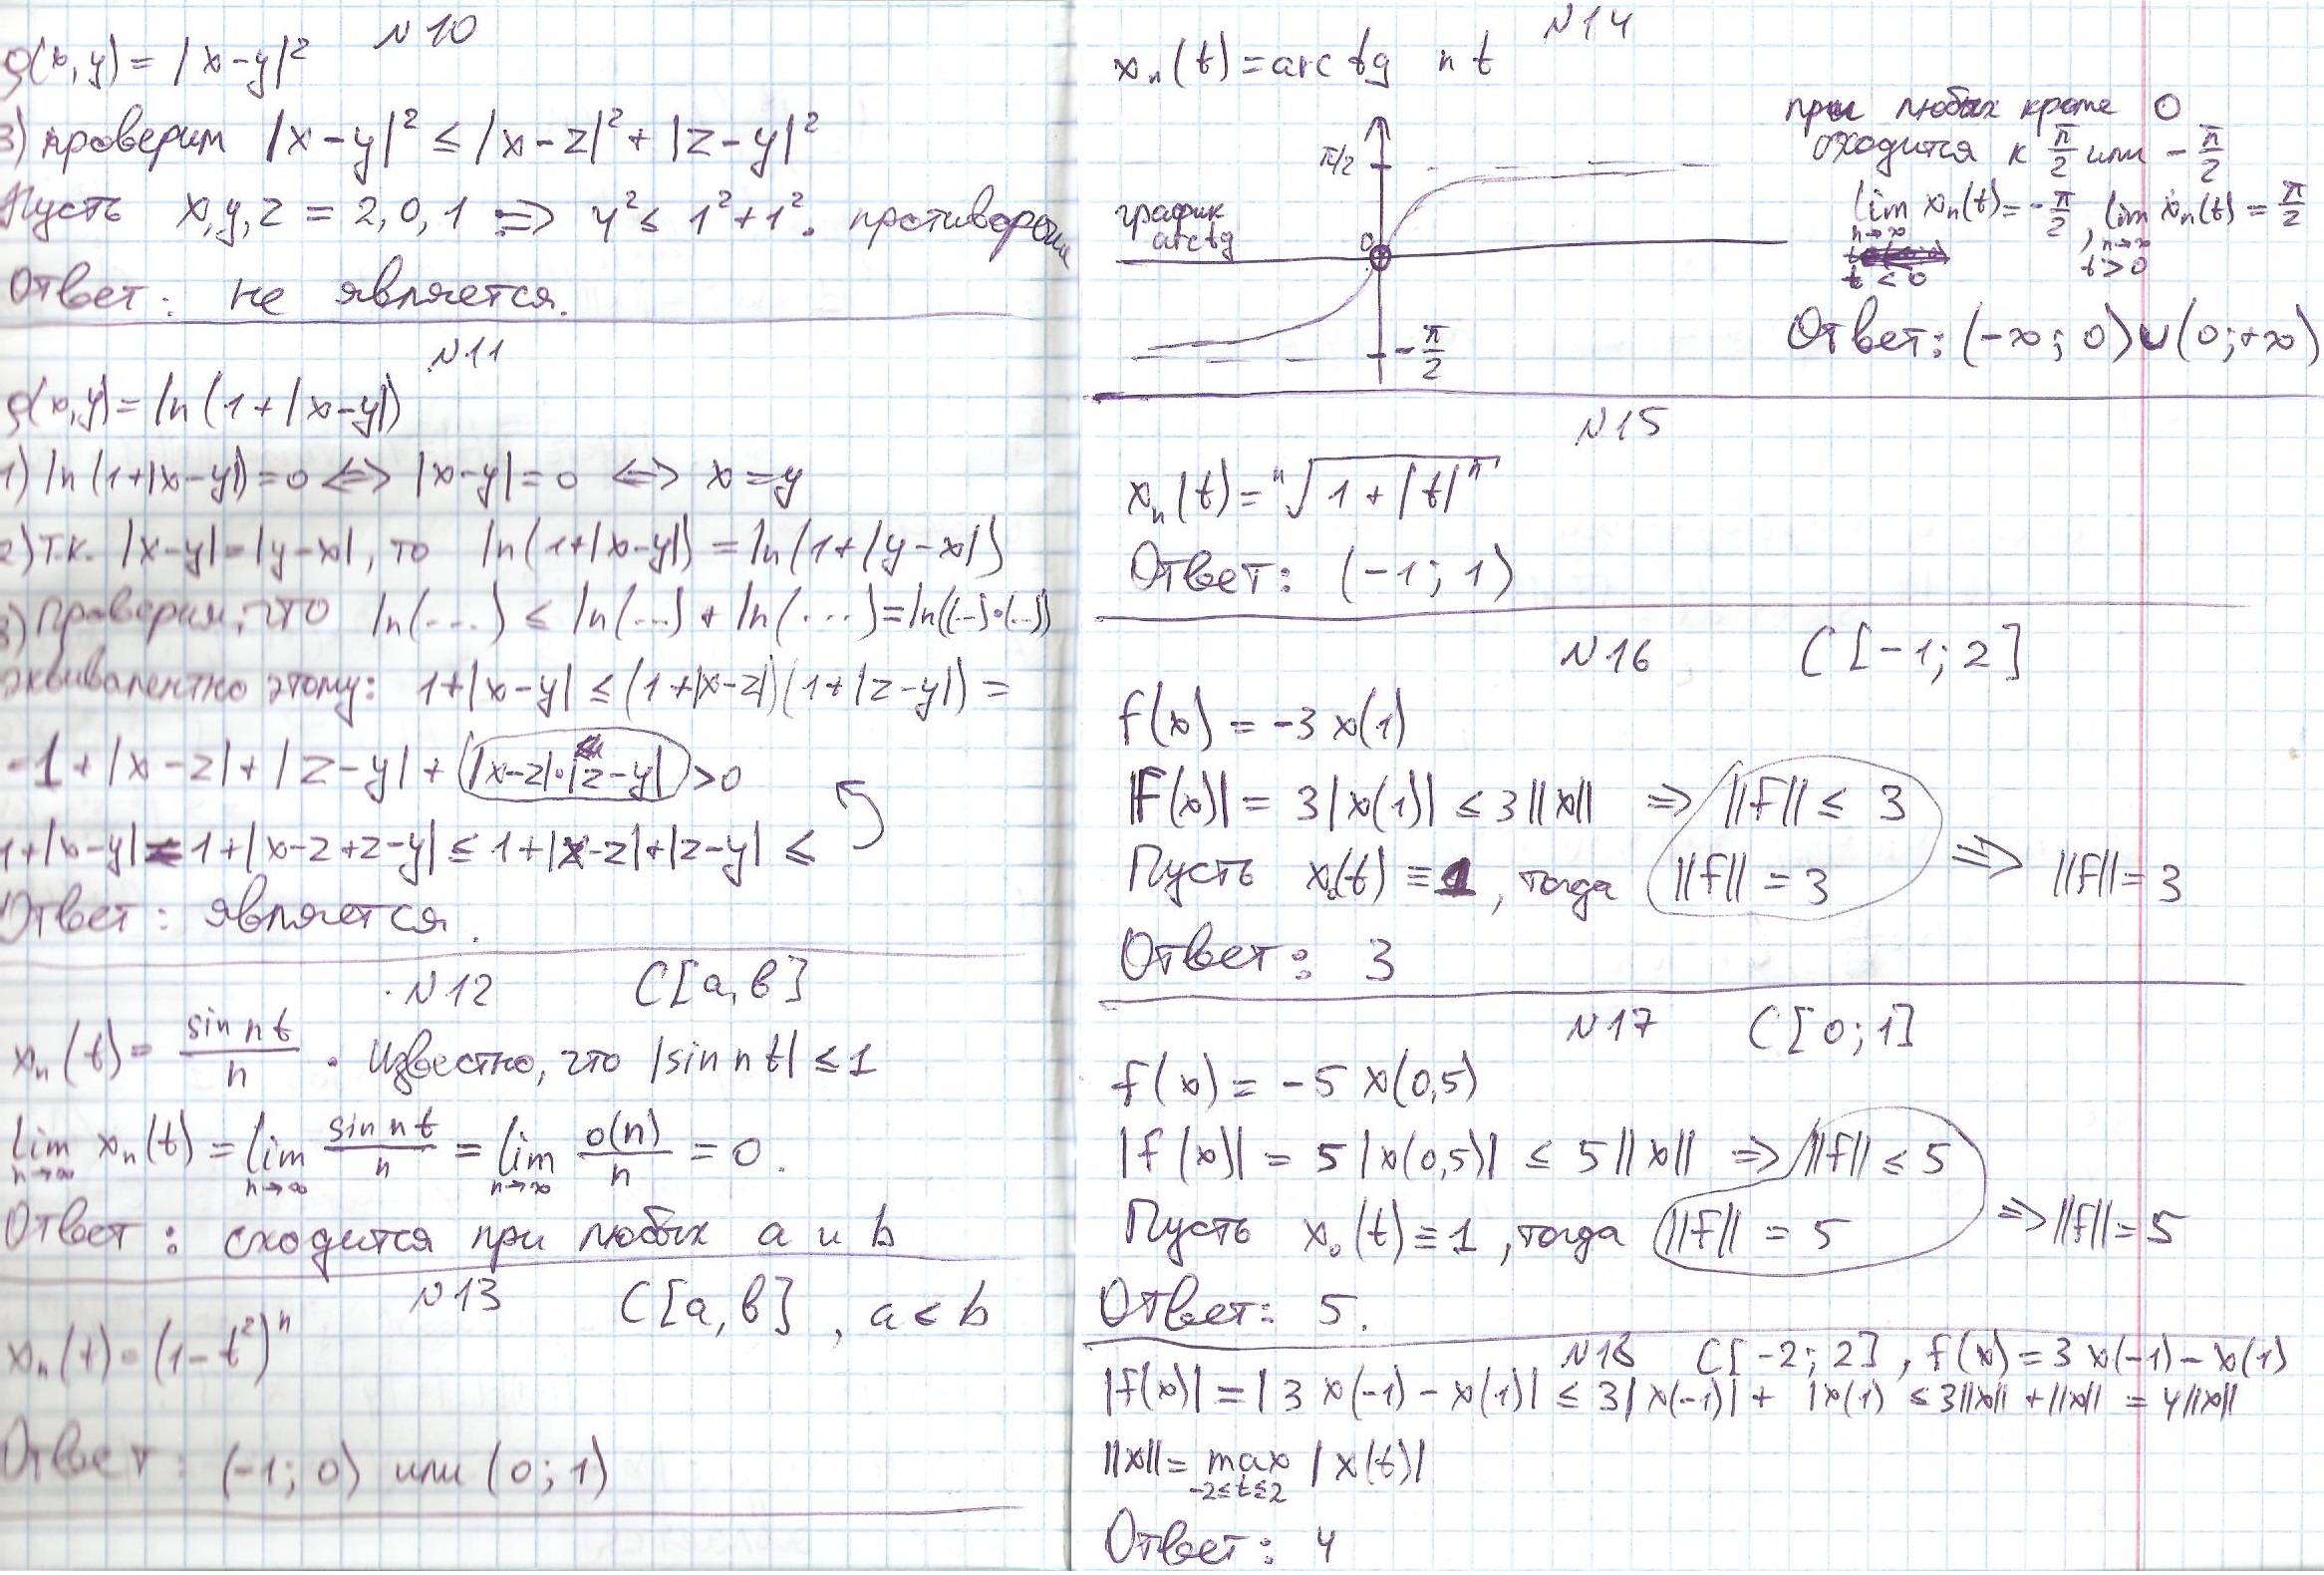 N10
ρ(x,y) = |x-y|²
3) проверим |x-y|² ≤ |x-z|² + |z-y|²
Пусть x,y,z = 2,0,1 ⇒ 4² ≤ 1²+1². противоречие
Ответ: не является.
N11
ρ(x,y) = ln(1+|x-y|)
1) ln(1+|x-y|)=0 ⇔ |x-y|=0 ⇔ x=y
2) т.к. |x-y|=|y-x|, то ln(1+|x-y|) = ln(1+|y-x|)
3) Проверим, что ln(...) ≤ ln(...) + ln(...) = ln((...)·(...))
эквивалентно этому: 1+|x-y| ≤ (1+|x-z|)(1+|z-y|) =
=1+|x-z|+|z-y|+|x-z|·|z-y| >0
1+|x-y| = 1+|x-z+z-y| ≤ 1+|x-z|+|z-y| ≤
Ответ: является.
N12 C[a,b]
xₙ(t) = sin nt / n . Известно, что |sin nt| ≤ 1
lim n→∞ xₙ(t) = lim n→∞ sin nt / n = lim n→∞ o(n) / n = 0.
Ответ: сходится при любых a и b
N13 C[a,b], a<b
xₙ(t) = (1-t²)ⁿ
Ответ: (-1; 0) или (0; 1)
N14
xₙ(t) = arc tg nt
при любых кроме 0
сходится к π/2 или -π/2
π/2
график
arctg
0
-π/2
lim n→∞ t<0 xₙ(t) = -π/2, lim n→∞ t>0 xₙ(t) = π/2
Ответ: (-∞; 0)∪(0;+∞)
N15
xₙ(t) = ⁿ√(1+|t|ⁿ)
Ответ: (-1; 1)
N16 C[-1; 2]
f(x) = -3x(1)
|F(x)| = 3|x(1)| ≤ 3||x|| ⇒ ||f|| ≤ 3
Пусть x₀(t) ≡ 1, тогда ||f|| = 3 ⇒ ||f|| = 3
Ответ: 3
N17 C[0; 1]
f(x) = -5x(0,5)
|f(x)| = 5|x(0,5)| ≤ 5||x|| ⇒ ||f|| ≤ 5
Пусть x₀(t) ≡ 1, тогда ||f|| = 5 ⇒ ||f|| = 5
Ответ: 5.
N18 C[-2; 2], f(x) = 3x(-1) - x(1)
|f(x)| = |3x(-1) - x(1)| ≤ 3|x(-1)| + |x(1) ≤ 3||x|| + ||x|| = 4||x||
||x|| = max -2≤t≤2 |x(t)|
Ответ: 4